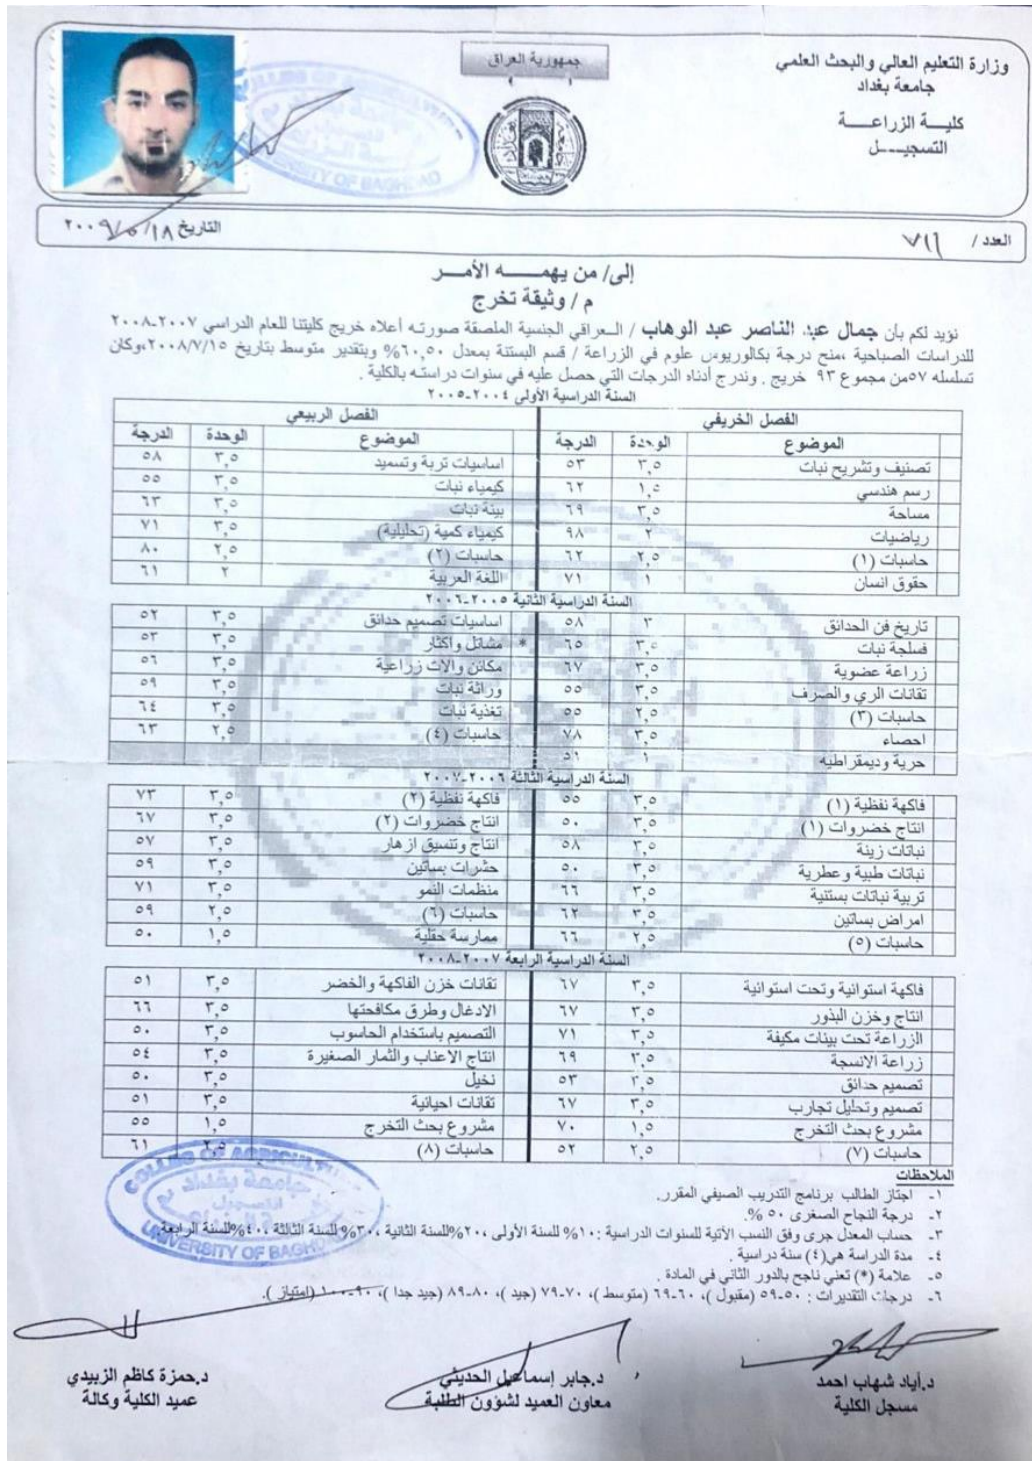 جمهورية العراق
وزارة التعليم العالي والبحث العلمي
جامعة بغداد
كليـــة الزراعــــة
التسجيــــل
COLLEG OF AGRICULTURE
UNIVERSITY OF BAGHDAD
العدد / ٧١٦
التاريخ ١٨/٥/٢٠٠٩
إلى/ من يهمــــــه الأمــر
م / وثيقة تخرج
نؤيد لكم بأن جمال عبد الناصر عبد الوهاب / العراقي الجنسية الملصقة صورته أعلاه خريج كليتنا للعام الدراسي ٢٠٠٧-٢٠٠٨
للدراسات الصباحية ،منح درجة بكالوريوس علوم في الزراعة / قسم البستنة بمعدل ٦٠,٥٠% وبتقدير متوسط بتاريخ ٢٠٠٨/٧/١٥،وكان
تسلسله ٥٧من مجموع ٩٣ خريج . وندرج أدناه الدرجات التي حصل عليه في سنوات دراسته بالكلية .
السنة الدراسية الأولى ٢٠٠٤-٢٠٠٥
الفصل الخريفي الفصل الربيعي
الموضوع الوحدة الدرجة الموضوع الوحدة الدرجة
تصنيف وتشريح نبات ٣,٥ ٥٣ اساسيات تربة وتسميد ٣,٥ ٥٨
رسم هندسي ١,٥ ٦٢ كيمياء نبات ٣,٥ ٥٥
مساحة ٣,٥ ٦٩ بيئة نبات ٣,٥ ٦٣
رياضيات ٢ ٩٨ كيمياء كمية (تحليلية) ٣,٥ ٧١
حاسبات (١) ٢,٥ ٦٢ حاسبات (٢) ٢,٥ ٨٠
حقوق انسان ١ ٧١ اللغة العربية ٢ ٦١
السنة الدراسية الثانية ٢٠٠٥-٢٠٠٦
تاريخ فن الحدائق ٣ ٥٨ اساسيات تصميم حدائق ٣,٥ ٥٢
فسلجة نبات ٣,٥ ٦٥ * مشاتل واكثار ٣,٥ ٥٣
زراعة عضوية ٣,٥ ٦٧ مكائن والات زراعية ٣,٥ ٥٦
تقانات الري والصرف ٣,٥ ٥٥ وراثة نبات ٣,٥ ٥٩
حاسبات (٣) ٢,٥ ٥٥ تغذية نبات ٣,٥ ٦٤
احصاء ٣,٥ ٧٨ حاسبات (٤) ٢,٥ ٦٣
حرية وديمقراطيه ١ ٥٦
السنة الدراسية الثالثة ٢٠٠٦-٢٠٠٧
فاكهة نفظية (١) ٣,٥ ٥٥ فاكهة نفظية (٢) ٣,٥ ٧٣
انتاج خضروات (١) ٣,٥ ٥٠ انتاج خضروات (٢) ٣,٥ ٦٧
نباتات زينة ٣,٥ ٥٨ انتاج وتنسيق ازهار ٣,٥ ٥٧
نباتات طبية وعطرية ٣,٥ ٥٠ حشرات بساتين ٣,٥ ٥٩
تربية نباتات بستنية ٣,٥ ٦٦ منظمات النمو ٣,٥ ٧١
امراض بساتين ٣,٥ ٦٢ حاسبات (٦) ٢,٥ ٥٩
حاسبات (٥) ٢,٥ ٦٦ ممارسة حقلية ١,٥ ٥٠
السنة الدراسية الرابعة ٢٠٠٧-٢٠٠٨
فاكهة استوائية وتحت استوائية ٣,٥ ٦٧ تقانات خزن الفاكهة والخضر ٣,٥ ٥١
انتاج وخزن البذور ٣,٥ ٦٧ الادغال وطرق مكافحتها ٣,٥ ٦٦
الزراعة تحت بيئات مكيفة ٣,٥ ٧١ التصميم باستخدام الحاسوب ٣,٥ ٥٠
زراعة الانسجة ٣,٥ ٦٩ انتاج الاعناب والثمار الصغيرة ٣,٥ ٥٤
تصميم حدائق ٣,٥ ٥٣ نخيل ٣,٥ ٥٠
تصميم وتحليل تجارب ٣,٥ ٦٧ تقانات احيائية ٣,٥ ٥١
مشروع بحث التخرج ١,٥ ٧٠ مشروع بحث التخرج ١,٥ ٥٥
حاسبات (٧) ٢,٥ ٥٢ حاسبات (٨) ٢,٥ ٦١
الملاحظات
١- اجتاز الطالب برنامج التدريب الصيفي المقرر.
٢- درجة النجاح الصغرى ٥٠ %.
٣- حساب المعدل جرى وفق النسب الآتية للسنوات الدراسية :١٠% للسنة الأولى ،٢٠%للسنة الثانية ،٣٠% للسنة الثالثة ،٤٠%للسنة الرابعة
٤- مدة الدراسة هي(٤) سنة دراسية .
٥- علامة (*) تعني ناجح بالدور الثاني في المادة .
٦- درجات التقديرات : ٥٠-٥٩ (مقبول )، ٦٠-٦٩ (متوسط )، ٧٠-٧٩ (جيد )، ٨٠-٨٩ (جيد جدا )، ٩٠-١٠٠ (امتياز ).
COLLEG OF AGRICULTURE
جامعة بغداد
التسجيل
UNIVERSITY OF BAGHDAD
د.أياد شهاب احمد
مسجل الكلية
د.جابر إسماعيل الحديثي
معاون العميد لشؤون الطلبة
د.حمزة كاظم الزبيدي
عميد الكلية وكالة